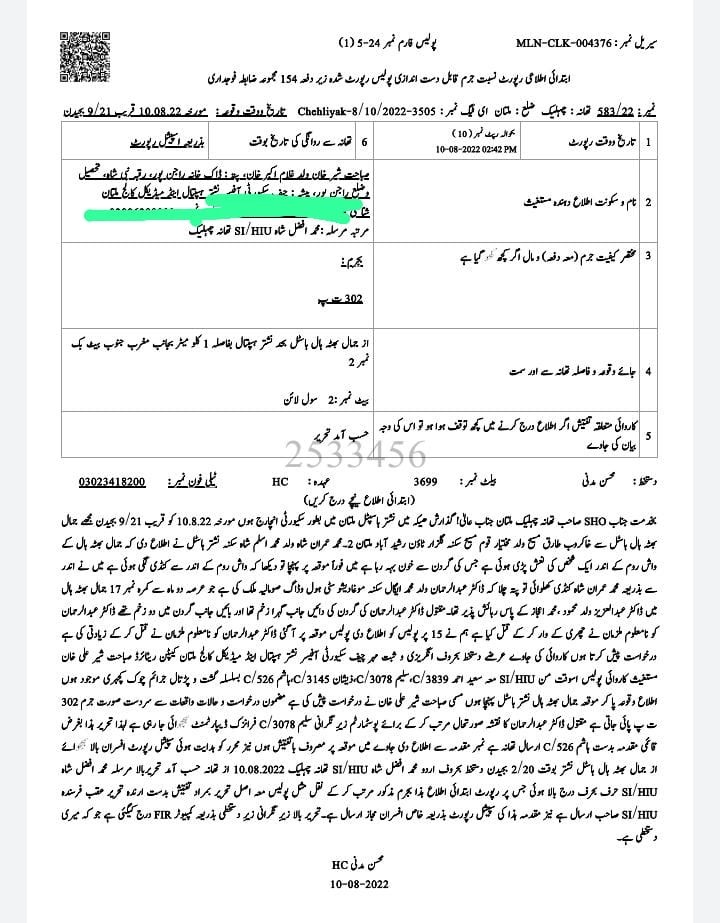 سیریل نمبر : MLN-CLK-004376 پولیس فارم نمبر 24-5 (1)
ابتدائی اطلاعی رپورٹ نسبت جرم قابل دست اندازی پولیس رپورٹ شدہ زیر دفعہ 154 مجموعہ ضابطہ فوجداری
نمبر: 583/22 تھانہ : چہلیک ضلع : ملتان ای ٹیگ نمبر : Chehliyak-8/10/2022-3505 تاریخ ووقت وقوعہ : مورخہ 10.08.22 قریب 9/21 بجیدن
1 تاریخ ووقت رپورٹ بحوالہ رپٹ نمبر (10) 6 تھانہ سے روانگی کی تاریخ بوقت بذریعہ اسپیشل رپورٹ
10-08-2022 02:42 PM
2 نام و سکونت اطلاع دہندہ مستغیث صباحت شیر خان ولد غلام اکبر خان، پتہ : ڈاک خانہ راجن پور، رقبہ نبی شاہ، تحصیل
وضلع راجن پور، پیشہ : چیف سکیورٹی آفیسر نشتر ہسپتال اینڈ میڈیکل کالج ملتان
مرتبہ مرسلہ : محمد افضل شاہ SI/HIU تھانہ چہلیک
3 مختصر کیفیت جرم (معہ دفعہ) و مال اگر کچھ کھو گیا ہے بجرم :
302 ت پ
4 جائے وقوعہ و فاصلہ تھانہ سے اور سمت از جمال بھٹہ ہال ہاسٹل بحد نشتر ہسپتال بفاصلہ 1 کلو میٹر بجانب مغرب جنوب بیٹ بک
نمبر 2
بیٹ نمبر :2 سول لائن
5 کاروائی متعلقہ تفتیش اگر اطلاع درج کرنے میں کچھ توقف ہوا ہو تو اس کی وجہ حسب آمد تحریر
بیان کی جاوے
2533456
دستخط : محسن مدنی بیلٹ نمبر : 3699 عہدہ : HC ٹیلی فون نمبر : 03023418200
(ابتدائی اطلاع نیچے درج کریں)
بخدمت جناب SHO صاحب تھانہ چہلیک ملتان جناب عالی! گذارش ھیکہ میں نشتر ہاسپٹل ملتان میں بطور سکیورٹی انچارج ہوں مورخہ 10.8.22 کو قریب 9/21 بجیدن مجھے جمال
بھٹہ ہال ہاسٹل سے خاکروب طارق مسیح ولد مختیار قوم مسیح سکنہ گلزار ٹاؤن رشید آباد ملتان 2۔محمد عمران شاہ ولد محمد اسلم شاہ سکنہ نشتر ہاسٹل نے اطلاع دی کہ جمال بھٹہ ہال کے
واش روم کے اندر ایک شخص کی نعش پڑی ہوئی ہے جس کی گردن سے خون بہہ رہا ہے میں فوراً موقعہ پر پہنچا تو دیکھا کہ واش روم کے اندر سے کنڈی لگی ہوئی ہے میں نے اندر
سے بذریعہ محمد عمران شاہ کنڈی کھلوائی تو پتہ چلا کہ ڈاکٹر عبدالرحمان ولد محمد ایگال سکنہ موغادیشو سٹی ہول وڈاگ صومالیہ ملک کی ہے جو عرصہ دو ماہ سے کمرہ نمبر 17 جمال بھٹہ ہال
میں ڈاکٹر عبدالعزیز ولد محمود، محمد اعجاز کے پاس رہائش پذیر تھا۔مقتول ڈاکٹر عبدالرحمان کی گردن کی دائیں جانب گہرا زخم تھا اور بائیں جانب گردن میں دو زخم تھے ڈاکٹر عبدالرحمان
کو نامعلوم ملزمان نے چھری کے وار کر کے قتل کیا ہے ہم نے 15 پر پولیس کو اطلاع دی پولیس موقعہ پر آ گئی ڈاکٹر عبدالرحمان کو نامعلوم ملزمان نے قتل کر کے زیادتی کی ہے
درخواست پیش کرتا ہوں کاروائی کی جاوے عرضے دستخط بحروف انگریزی و ثبت مہر چیف سکیورٹی آفیسر نشتر ہسپتال اینڈ میڈیکل کالج ملتان کیپٹن ریٹائرڈ صباحت شیر علی خان
مستغیث کاروائی پولیس اسوقت من SI/HIU معہ سعید احمد C/3839،سلیم C/3078،ذیشان C/3145،ہاشم C/526 بسلسلہ گشت و پڑتال جرائم چوک کچہری موجود ہوں
اطلاع وقوعہ پا کر موقعہ جمال بھٹہ ہال نشتر ہاسٹل پہنچا ہوں مسمی صباحت شیر علی خان نے درخواست پیش کی ہے مضمون درخواست و حالات واقعات سے سردست صورت جرم 302
ت پ پائی جاتی ہے مقتول ڈاکٹر عبدالرحمان کا نقشہ صورتحال مرتب کر کے برائے پوسٹمارٹم زیر نگرانی سلیم C/3078 فرانزک ڈیپارٹمنٹ بھجوائی جا رہی ہے لہذا تحریر ہذا بغرض
قائمی مقدمہ بدست ہاشم C/526 ارسال تھانہ ہے نمبر مقدمہ سے اطلاع دی جاوے میں موقعہ پر مصروف باتفتیش ہوں نیز محرر کو ہدایت ہوئی سپیشل رپورٹ افسران بالا بھجوائے
از جمال بھٹہ ہال ہاسٹل نشتر بوقت 2/20 بجیدن دستخط بحروف اردو محمد افضل شاہ SI/HIU تھانہ چہلیک 10.08.2022 از تھانہ حسب آمد تحریر بالا مرسلہ محمد افضل شاہ
SI/HIU حرف بحرف درج بالا ہوئی جس پر رپورٹ ابتدائی اطلاع ہذا بجرم مذکور مرتب کر کے نقل مثل پولیس معہ اصل تحریر بمراد تفتیش بدست ارندہ تحریر عقب فرسندہ
SI/HIU صاحب ارسال ہے نیز مقدمہ ہذا کی سپیشل رپورٹ بذریعہ خاص افسران مجاز ارسال ہے۔تحریر بالا زیر نگرانی زیر دستخطی بذریعہ کمپیوٹر FIR درج کیگئی ہے جو کہ میری
دستخطی ہے۔
محسن مدنی HC
10-08-2022